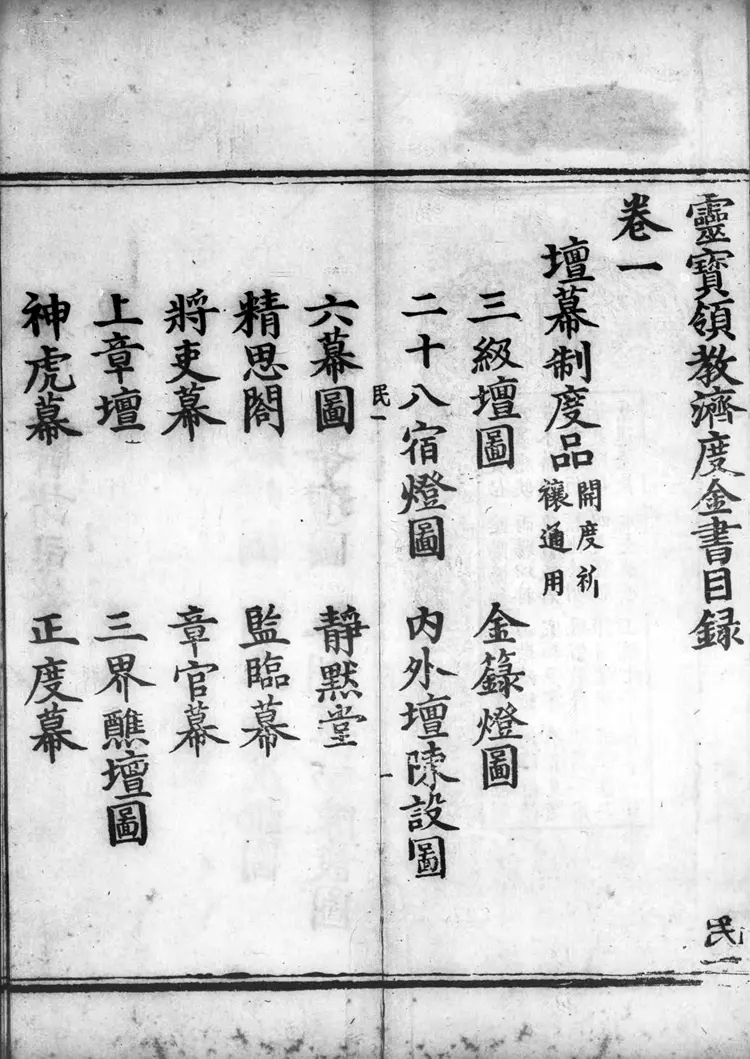 靈寶領教濟度金書目録
民一
卷一
壇幕制度品 開度祈
禳通用
三級壇圖 金籙燈圖
二十八宿燈圖 內外壇陳設圖
民一
一
六幕圖 靜黙堂
精思閤 監臨幕
將吏幕 章官幕
上章壇 三界醮壇圖
神虎幕 正度幕